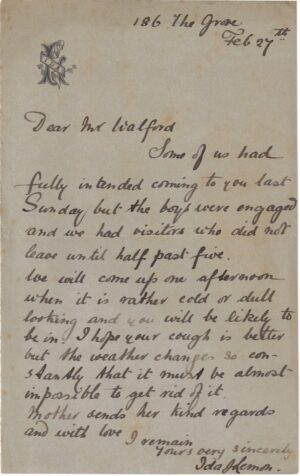 186 The Grove
Feb 27th
Dear Mr Walford
Some of us had
fully intended coming to you last
Sunday but the boys were engaged
and we had visitors who did not
leave until half past five.
We will come up one afternoon
when it is rather cold or dull
looking and you will be likely to
be in. I hope your cough is better
but the weather changes so con-
stantly that it must be almost
impossible to get rid of it.
Mother sends her kind regards
and with love I remain
Yours very sincerely
Ida Lemon.